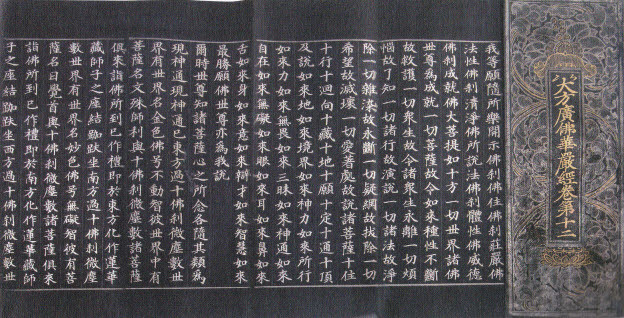 大方廣佛華嚴經卷第十二
我等願隨所樂開示佛刹佛住佛刹莊嚴佛
法性佛刹清淨佛所說法佛刹體性佛威德
佛刹成就佛大菩提如十方一切世界諸佛
世尊為成就一切菩薩故令如來種性不斷
故救護一切衆生故令諸衆生永離一切煩
惱故了知一切諸行故演說一切諸法故淨
除一切雜染故永斷一切疑網故拔除一切
希望故滅壞一切愛著處故說諸菩薩十住
十行十迴向十藏十地十願十定十通十頂
及說如來地如來境界如來神力如來所行
如來力如來無畏如來三昧如來神通如來
自在如來無礙如來眼如來耳如來鼻如來
舌如來身如來意如來辯才如來智慧如來
最勝願佛世尊亦為我說
爾時世尊知諸菩薩心之所念各隨其類為
現神通現神通已東方過十佛刹微塵數世
界有世界名金色佛號不動智彼世界中有
菩薩名文殊師利與十佛刹微塵數諸菩薩
俱來詣佛所到已作禮即於東方化作蓮華
藏師子之座結跏趺坐南方過十佛刹微塵
數世界有世界名妙色佛號無礙智彼有菩
薩名曰覺首與十佛刹微塵數諸菩薩俱來
詣佛所到已作禮即於南方化作蓮華藏師
子之座結跏趺坐西方過十佛刹微塵數世